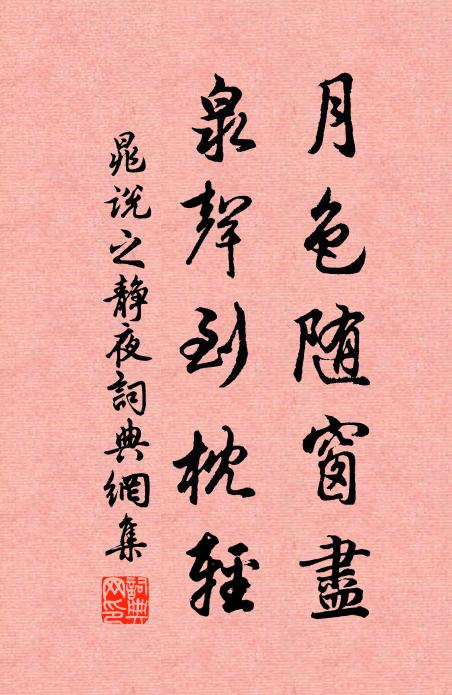 月色随窗盡
泉聲到枕輕
晁説之靜夜詞典網集
詞典網印